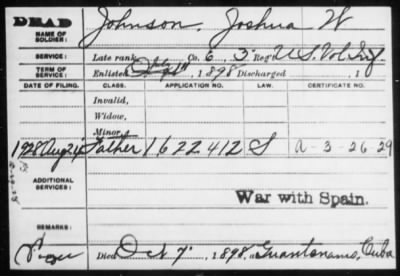 DEAD
NAME OF SOLDIER: Johnson, Joshua W
SERVICE: Late rank, Co. 6, 3" Reg't U S. Vol. Inf.
TERM OF SERVICE: Enlisted July, 1898 Discharged, 1
DATE OF FILING. CLASS. APPLICATION NO. LAW. CERTIFICATE NO.
Invalid,
Widow,
Minor,
1928 Aug 24 Father 1622412 S A-3-26-29
ADDITIONAL SERVICES:
War with Spain.
REMARKS:
Died Oct 7, 1898, at Guantanamo, Cuba